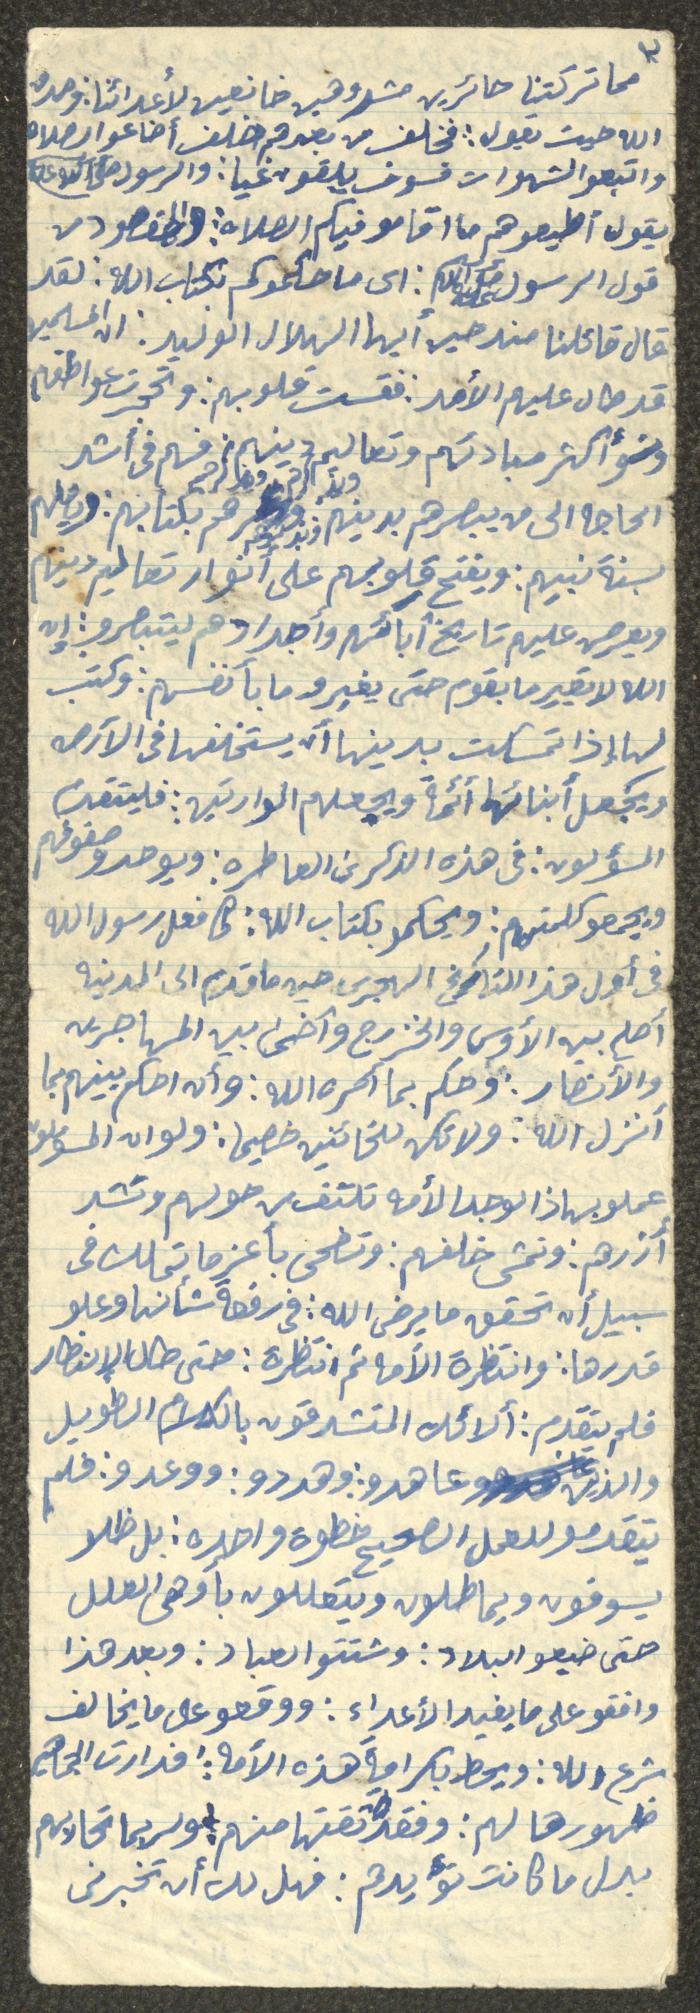 ٣
مما تركتنا حائرين مشدوهين خانعين لأعدائنا: وصدق
الله حيث يقول: فخلف من بعدهم خلف أضاعوا الصلاة
واتبعوا الشهوات فسوف يلقون غيا: والرسول صلى الله عليه
يقول أطيعوهم ما اقاموا فيكم الصلاة: والمقصود من
قول الرسول صلى الله عليه وسلم: اى ما حكموكم بكتاب الله: لقد
قال قائلنا منذ حين أيها الهلال الوليد: ان المسلمين
قد طال عليهم الأمد: فقست قلوبهم: وتحجرت عواطفهم
ونسو أكثر مبادئهم وتعاليم دينهم: فهم فى أشد
الحاجة الى من يبصرهم بدينهم ويذكرهم بكتابهم: ويصلهم
بسنة نبيهم: ويفتح قلوبهم على أنوار تعاليم دينهم
ويعرض عليهم تاريخ أبائهم وأجدادهم ليتبصرو: إن
الله لا يغير ما بقوم حتى يغيرو ما بأنفسهم: وكتب
لها إذا تمسكت بدينها أن يستخلفها فى الأرض
ويجعل أبنائها أئمة ويجعلهم الوارثين: فليتقدم
المسؤلون: فى هذه الذكرى العاطره: ويوحدو صفوفهم
ويجمعو كلمتهم: ويحكمو بكتاب الله: كما فعل رسول الله
فى أول هذا التاريخ الهجرى حين ما قدم الى المدينه
أصلح بين الأوس والخزرج وآخى بين المهاجرين
والأنصار: وحكم بما أمره الله: وأن احكم بينهم بما
أنزل الله: ولا تكن للخائنين خصيما: ولو ان المسؤلون
عملو بهاذا لوجدا الأمه تلتف من حولهم وتشد
أزرهم: وتمشى خلفهم: وتضحى بأعز ما تملك فى
سبيل أن تحقق ما يرضى الله: فى رفعة شأنها وعلو
قدرها: وانتظرة الأمه ثم انتظرة: حتى طال الإنتظار
فلم يتقدم: ألائك المتشدقون بالكلام الطويل
والذين عاهدو: وهددو: ووعدو: فلم
يتقدمو للعمل الصحيح خطوة واحده: بل ظلا
يسوفون ويماطلون ويتعللون بأوهى العلل
حتى ضيعو البلاد: وشتتو العباد: وبعد هذا
وافقو على ما يفيد الأعداء: ووقعو على ما يخالف
شرع الله: ويحط بكرامة هذه الأمه: فدارت الجماهير
ظهورها لهم: وفقدت ثقتها منهم: ولربما تحاربهم
بدل ما كانت تؤيدهم: فهل لك أن تخبرنى